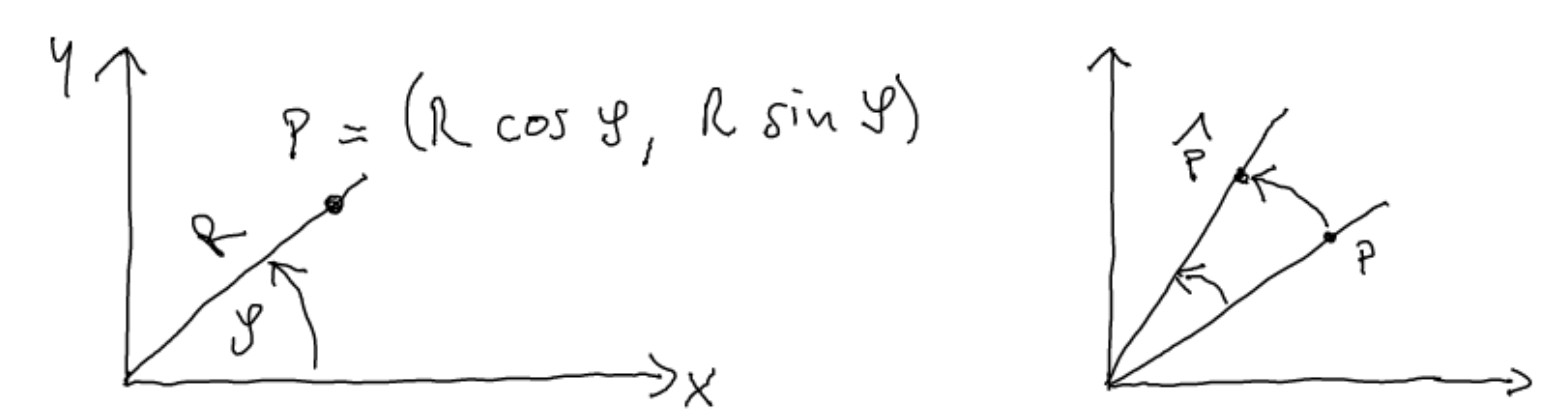 y
P = (R cos φ, R sin φ)
R
φ
x
P̂
P